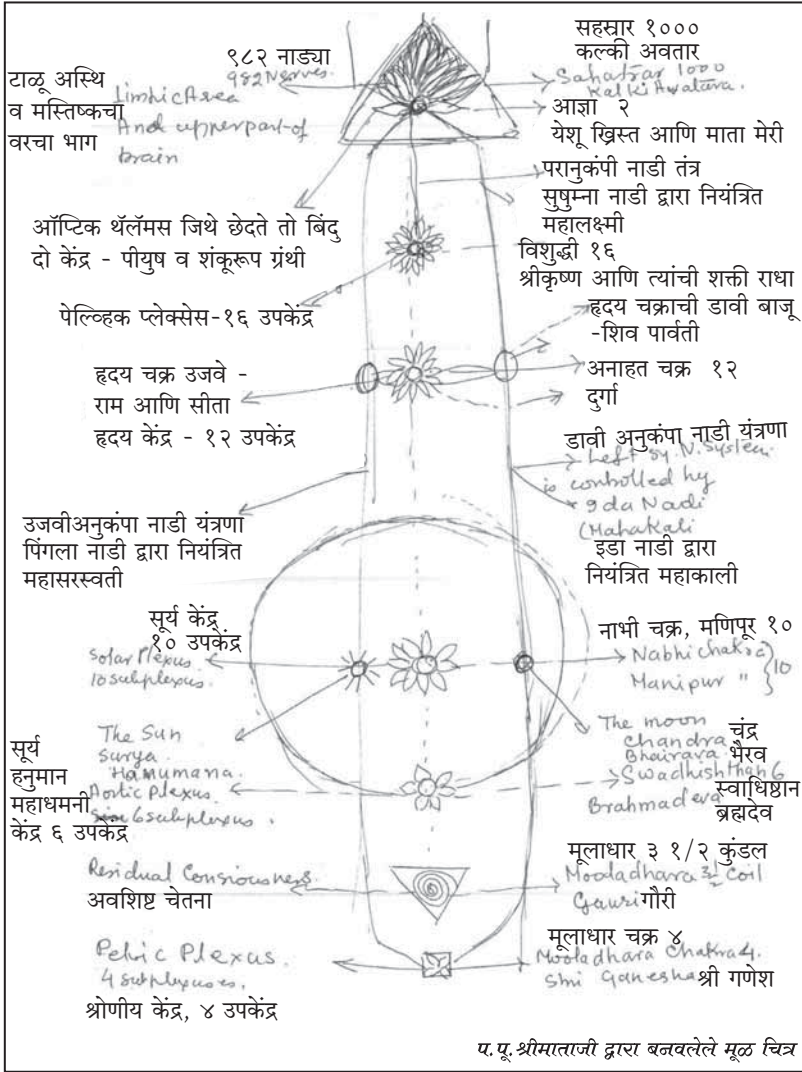 सहस्रार १०००
कल्की अवतार
९८२ नाड्या
982 Nerves.
Sahatrar 1000
Kalki Avatara.
टाळू अस्थि
व मस्तिष्कचा
वरचा भाग
Limbic Area
And upper part of
brain
आज्ञा २
येशू ख्रिस्त आणि माता मेरी
परानुकंपी नाडी तंत्र
सुषुम्ना नाडी द्वारा नियंत्रित
महालक्ष्मी
ऑप्टिक थॅलॅमस जिथे छेदते तो बिंदु
दो केंद्र - पीयुष व शंकूरूप ग्रंथी
विशुद्धी १६
श्रीकृष्ण आणि त्यांची शक्ती राधा
पेल्व्हिक प्लेक्सेस-१६ उपकेंद्र
हृदय चक्राची डावी बाजू
-शिव पार्वती
हृदय चक्र उजवे -
राम आणि सीता
हृदय केंद्र - १२ उपकेंद्र
अनाहत चक्र १२
दुर्गा
डावी अनुकंपा नाडी यंत्रणा
Left Sy. N. System
is controlled by
Ida Nadi
(Mahakali
इडा नाडी द्वारा
नियंत्रित महाकाली
उजवीअनुकंपा नाडी यंत्रणा
पिंगला नाडी द्वारा नियंत्रित
महासरस्वती
सूर्य केंद्र
१० उपकेंद्र
Solar Plexus
10 subplexus.
नाभी चक्र, मणिपूर १०
Nabhi chakra
Manipur " } 10
The Sun
Surya.
Hanumana.
Aortic Plexus
6 subplexus.
सूर्य
हनुमान
महाधमनी
केंद्र ६ उपकेंद्र
The moon
chandra चंद्र
Bhairava भैरव
Swadhishthan 6
स्वाधिष्ठान
Brahmadeva
ब्रह्मदेव
Residual Consiousness.
अवशिष्ट चेतना
मूलाधार ३ १/२ कुंडल
Mooladhara 3½ coil
Gauri गौरी
Pelvic Plexus.
4 subplexuses.
श्रोणीय केंद्र, ४ उपकेंद्र
मूलाधार चक्र ४
Mooladhara Chakra 4.
Shri Ganesha श्री गणेश
प.पू.श्रीमाताजी द्वारा बनवलेले मूळ चित्र